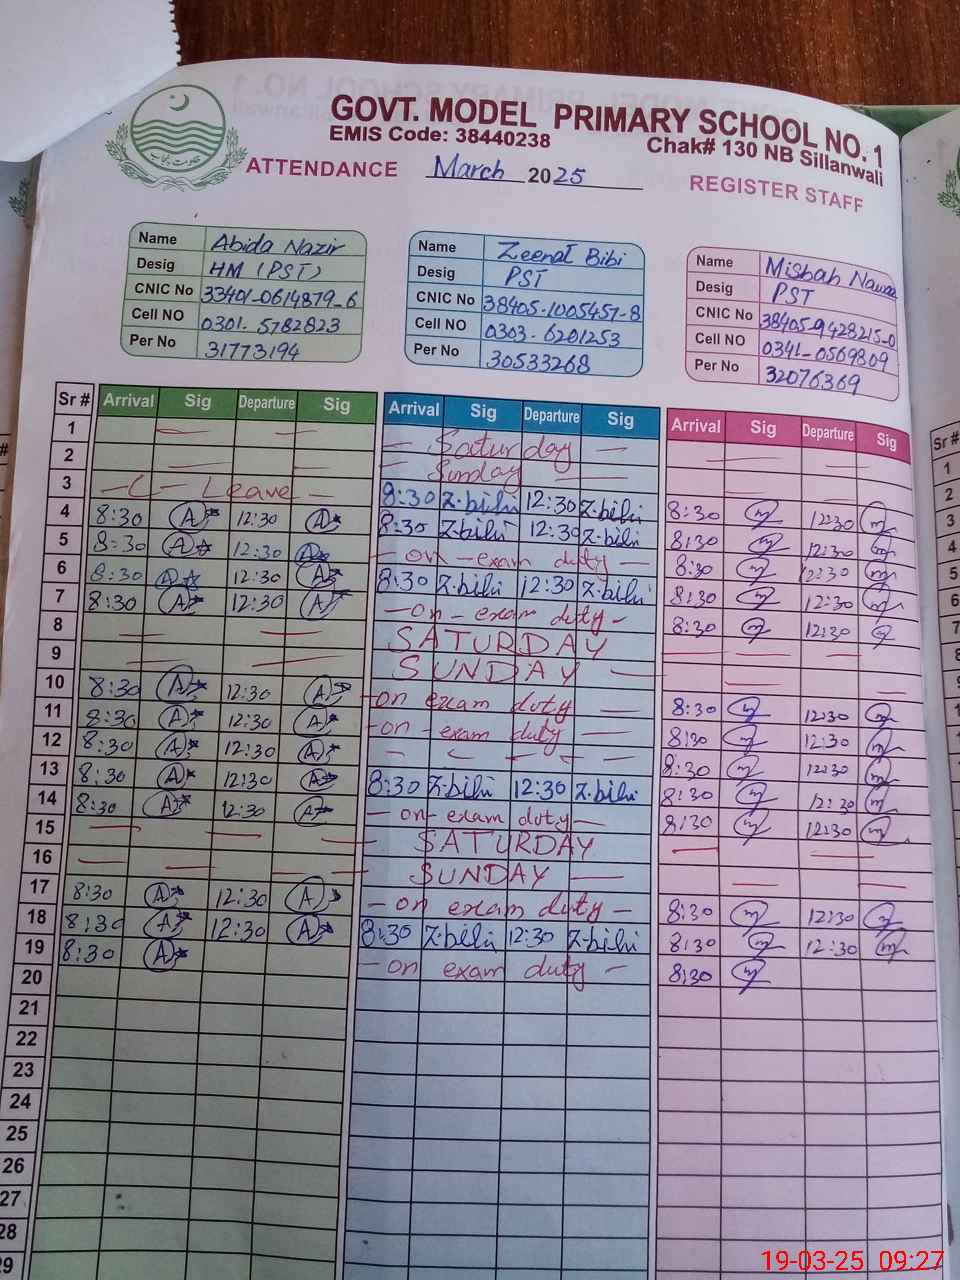 GOVT. MODEL PRIMARY SCHOOL NO. 1
EMIS Code: 38440238 Chak# 130 NB Sillanwali
ATTENDANCE March 2025 REGISTER STAFF
حکومت پنجاب
Name Abida Nazir
Desig HM (PST)
CNIC No 33401-0614879-6
Cell NO 0301-5782823
Per No 31773194
Name Zeenat Bibi
Desig PST
CNIC No 38405-1005457-8
Cell NO 0303-6201253
Per No 30533268
Name Misbah Nawaz
Desig PST
CNIC No 38405-9428215-0
Cell NO 0341-0569809
Per No 32076369
Sr # Arrival Sig Departure Sig Arrival Sig Departure Sig Arrival Sig Departure Sig
1 — — — Saturday — — —
2 — — — Sunday — — —
3 -C- Leave - 8:30 Z.bibi 12:30 Z.bibi 8:30 m 12:30 m
4 8:30 A 12:30 A 8:30 Z.bibi 12:30 Z.bibi 8:30 m 12:30 m
5 8:30 A 12:30 A - on - exam duty - 8:30 m 12:30 m
6 8:30 A 12:30 A 8:30 Z.bibi 12:30 Z.bibi 8:30 m 12:30 m
7 8:30 A 12:30 A - on - exam duty - 8:30 m 12:30 m
8 — — SATURDAY — — —
9 — — SUNDAY — — —
10 8:30 A 12:30 A - on exam duty — 8:30 m 12:30 m
11 8:30 A 12:30 A - on - exam duty — 8:30 m 12:30 m
12 8:30 A 12:30 A - C - - - 8:30 m 12:30 m
13 8:30 A 12:30 A 8:30 Z.bibi 12:30 Z.bibi 8:30 m 12:30 m
14 8:30 A 12:30 A - on - exam duty - 8:30 m 12:30 m
15 — — — SATURDAY — —
16 — — — — SUNDAY — — —
17 8:30 A 12:30 A - on exam duty - 8:30 m 12:30 m
18 8:30 A 12:30 A 8:30 Z.bibi 12:30 Z.bibi 8:30 m 12:30 m
19 8:30 A - on exam duty - 8:30 m
20
21
22
23
24
25
26
27
28
29
Sr #
1
2
3
4
5
6
7
8
19-03-25 09:27